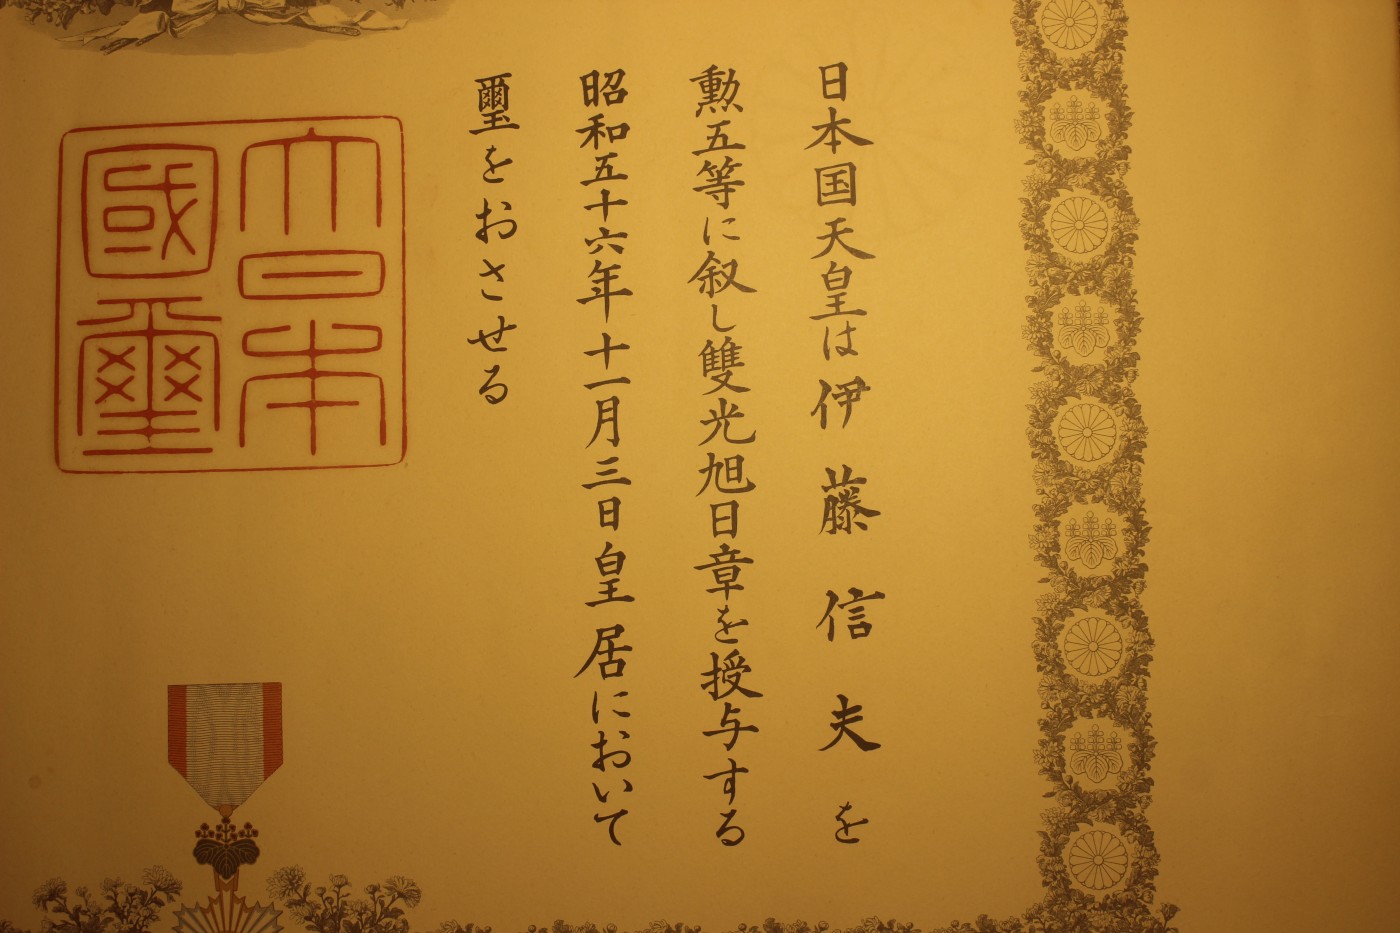 日本国天皇は伊藤信夫を
勲五等に叙し雙光旭日章を授与する
昭和五十六年十一月三日皇居において
璽をおさせる
大日本
國璽